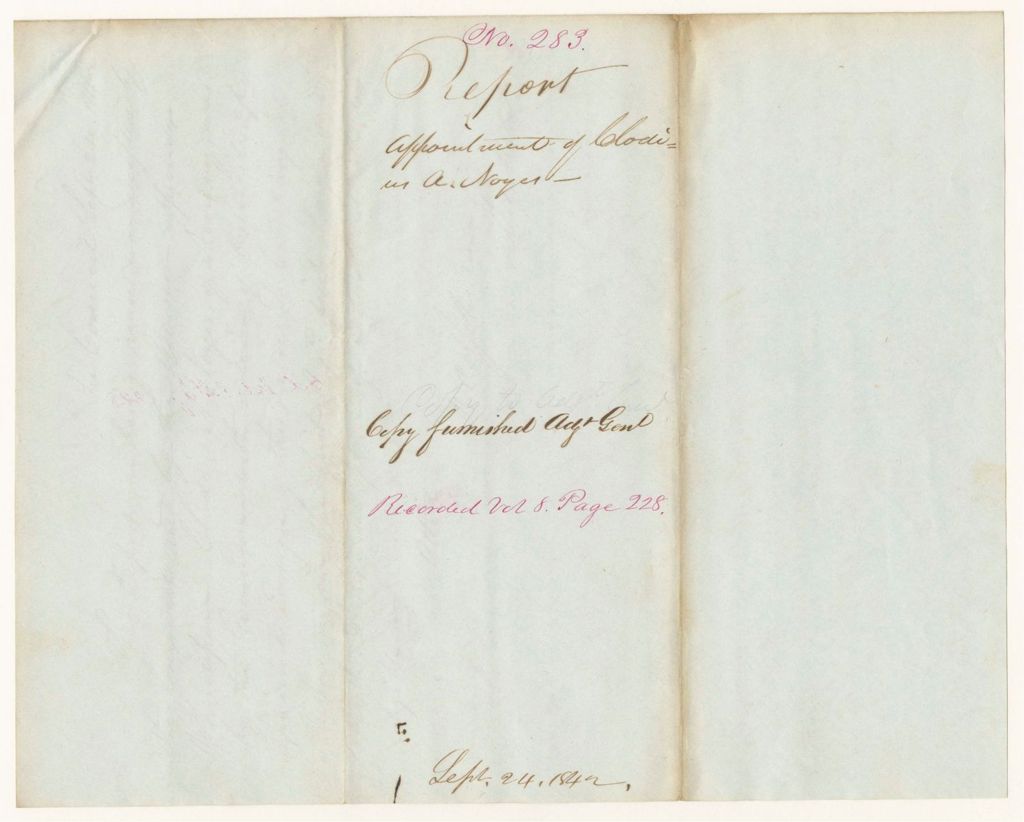 No. 283.
Report
Appointment of Clodi=
us A. Noyes —
Copy furnished Adjt Genl
Recorded Vol 8. Page 228.
Sept. 24. 1842.